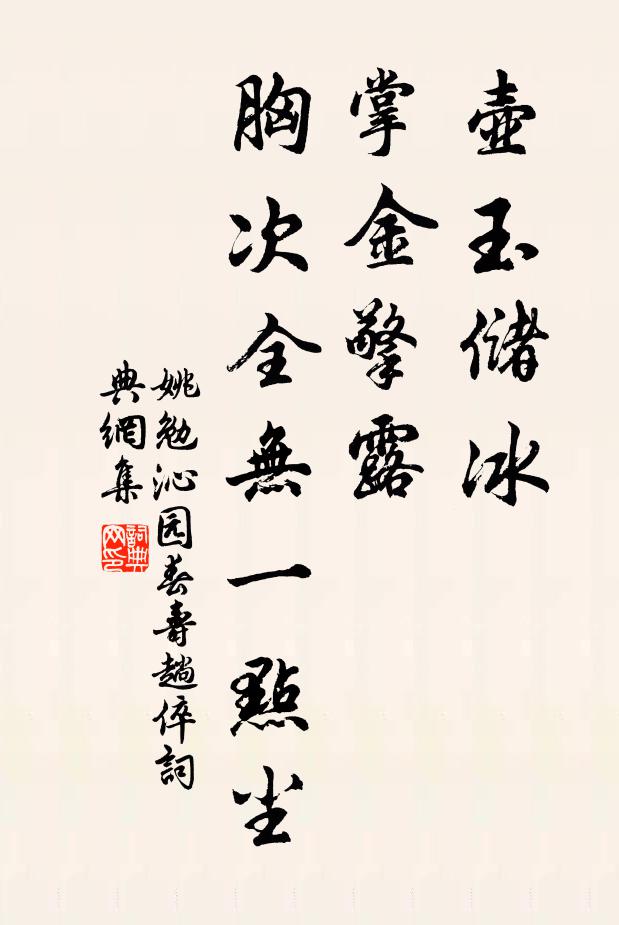 壺玉儲冰
掌金擎露
胸次全無一點尘
姚勉沁园春壽趙倅詞
典網集
詞典
网印